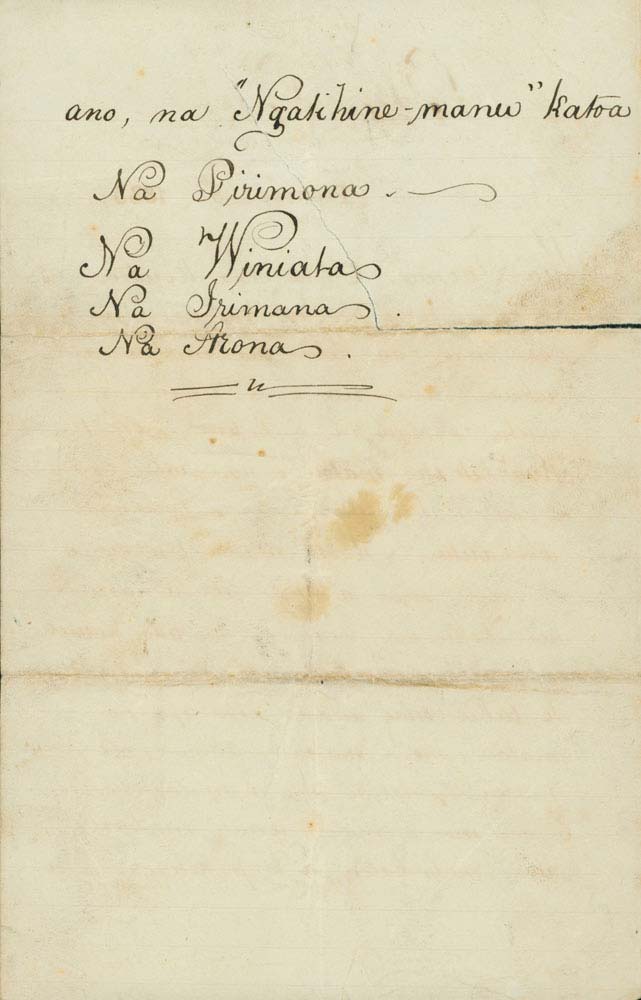 ano, na "Ngatihine-manu" katoa
Na Pirimona.
Na Winiata
Na Irimana.
Na Arona.